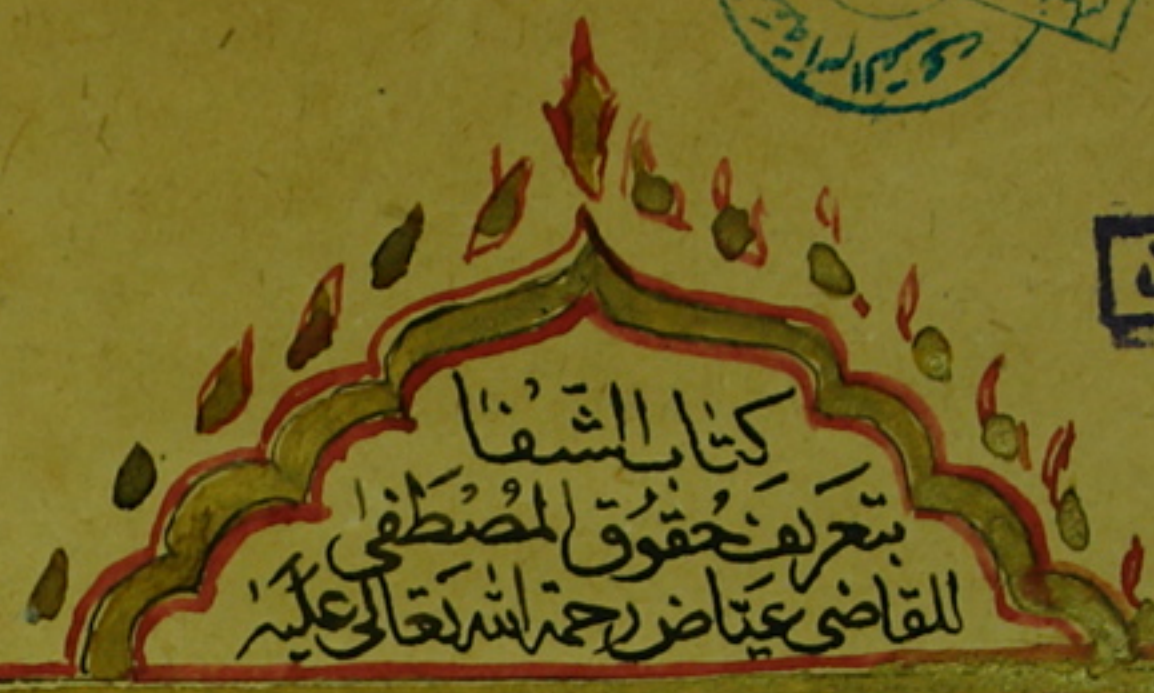 كتاب الشفا
بتعريف حقوق المصطفى
للقاضى عياض رحمة الله تعالى عليه